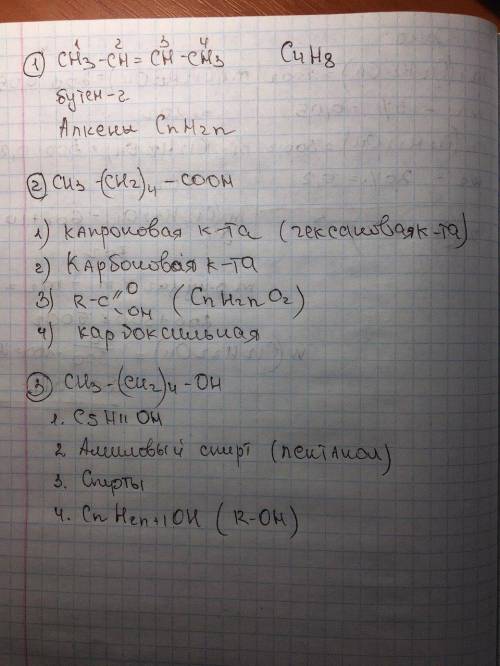 ① CH3-CH=CH-CH3 C4H8
1 2 3 4
бутен-2
Алкены CnH2n
② CH3-(CH2)4-COOH
1) Капроновая к-та (гексановая к-та)
2) Карбоновая к-та
3) R-C=O OH (CnH2nO2)
4) карбоксильная
③ CH3-(CH2)4-OH
1. C5H11OH
2. Амиловый спирт (пентанол)
3. Спирты
4. CnH2n+1OH (R-OH)